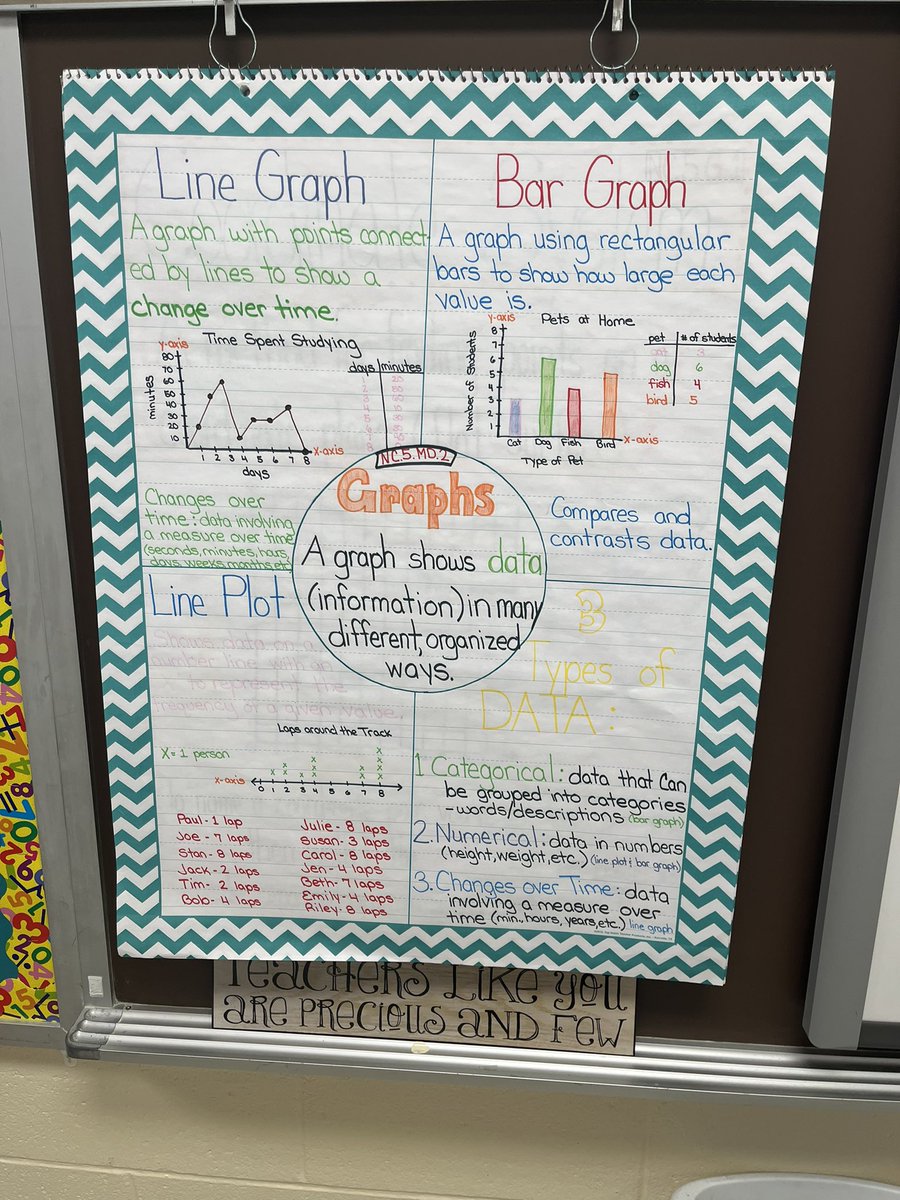 Line Graph
A graph with points connect
ed by lines to show a
change over time.
Time Spent Studying
y-axis
80
70
50
40
30
20
10
minutes
1 2 3 4 5 6 7 8
x-axis
days
days minutes
1 20
2
3
4
5
6
7
8
Changes over
time: data involving
a measure over time
(seconds, minutes, hours,
days, weeks, months, etc.
Bar Graph
A graph using rectangular
bars to show how large each
value is.
y-axis
Pets at Home
Number of Students
8
7
6
5
4
3
2
1
Cat Dog Fish Bird
x-axis
Type of Pet
pet # of students
cat 3
dog 6
fish 4
bird 5
Compares and
contrasts data.
NC.5.MD.2
Graphs
A graph shows data
(information) in many
different, organized
ways.
Line Plot
Shows data on a
number line with an
to represent the
frequency of a given value.
Laps around the Track
X = 1 person
x-axis
0 1 2 3 4 5 6 7 8
Paul - 1 lap
Joe - 7 laps
Stan - 8 laps
Jack - 2 laps
Tim - 2 laps
Bob - 4 laps
Julie - 8 laps
Susan - 3 laps
Carol - 8 laps
Jen - 4 laps
Beth - 7 laps
Emily - 4 laps
Riley - 8 laps
3
Types of
DATA:
1 Categorical: data that can
be grouped into categories
- words/descriptions (bar graph)
2. Numerical: data in numbers
(height, weight, etc.) (line plot & bar graph)
3. Changes over Time: data
involving a measure over
time (min., hours, years, etc.) line graph
TEACHERS LIKE YOU
ARE PRECIOUS AND FEW